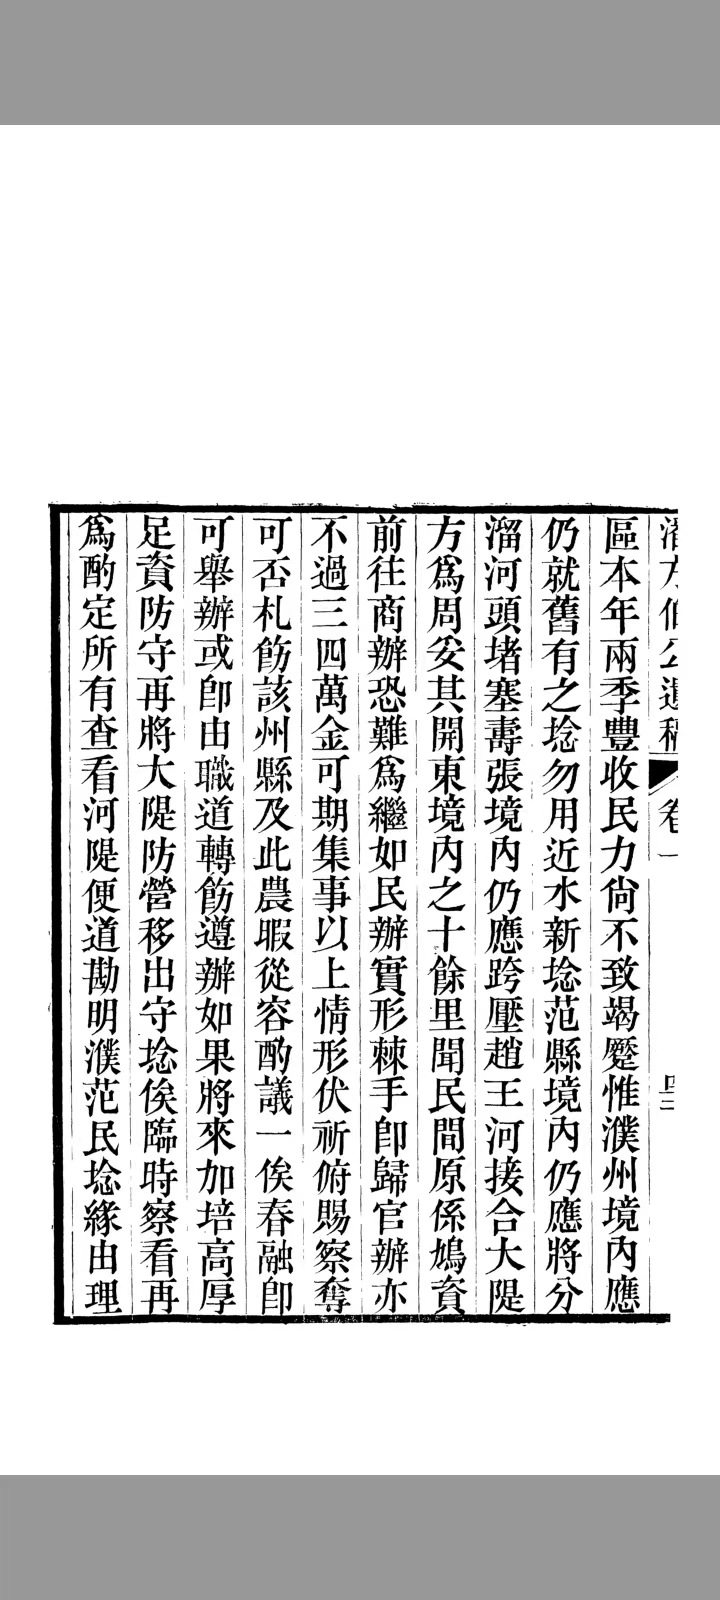 潘方伯公遺稿 卷一 四二
區本年兩季豐收民力尙不致竭蹷惟濮州境內應
仍就舊有之埝勿用近水新埝范縣境內仍應將分
溜河頭堵塞壽張境內仍應跨壓趙王河接合大隄
方爲周妥其開東境內之十餘里聞民間原係鳩資
前往商辦恐難爲繼如民辦實形棘手卽歸官辦亦
不過三四萬金可期集事以上情形伏祈俯賜察奪
可否札飭該州縣及此農暇從容酌議一俟春融卽
可舉辦或卽由職道轉飭遵辦如果將來加培高厚
足資防守再將大隄防營移出守埝俟臨時察看再
爲酌定所有查看河隄便道勘明濮范民埝緣由理